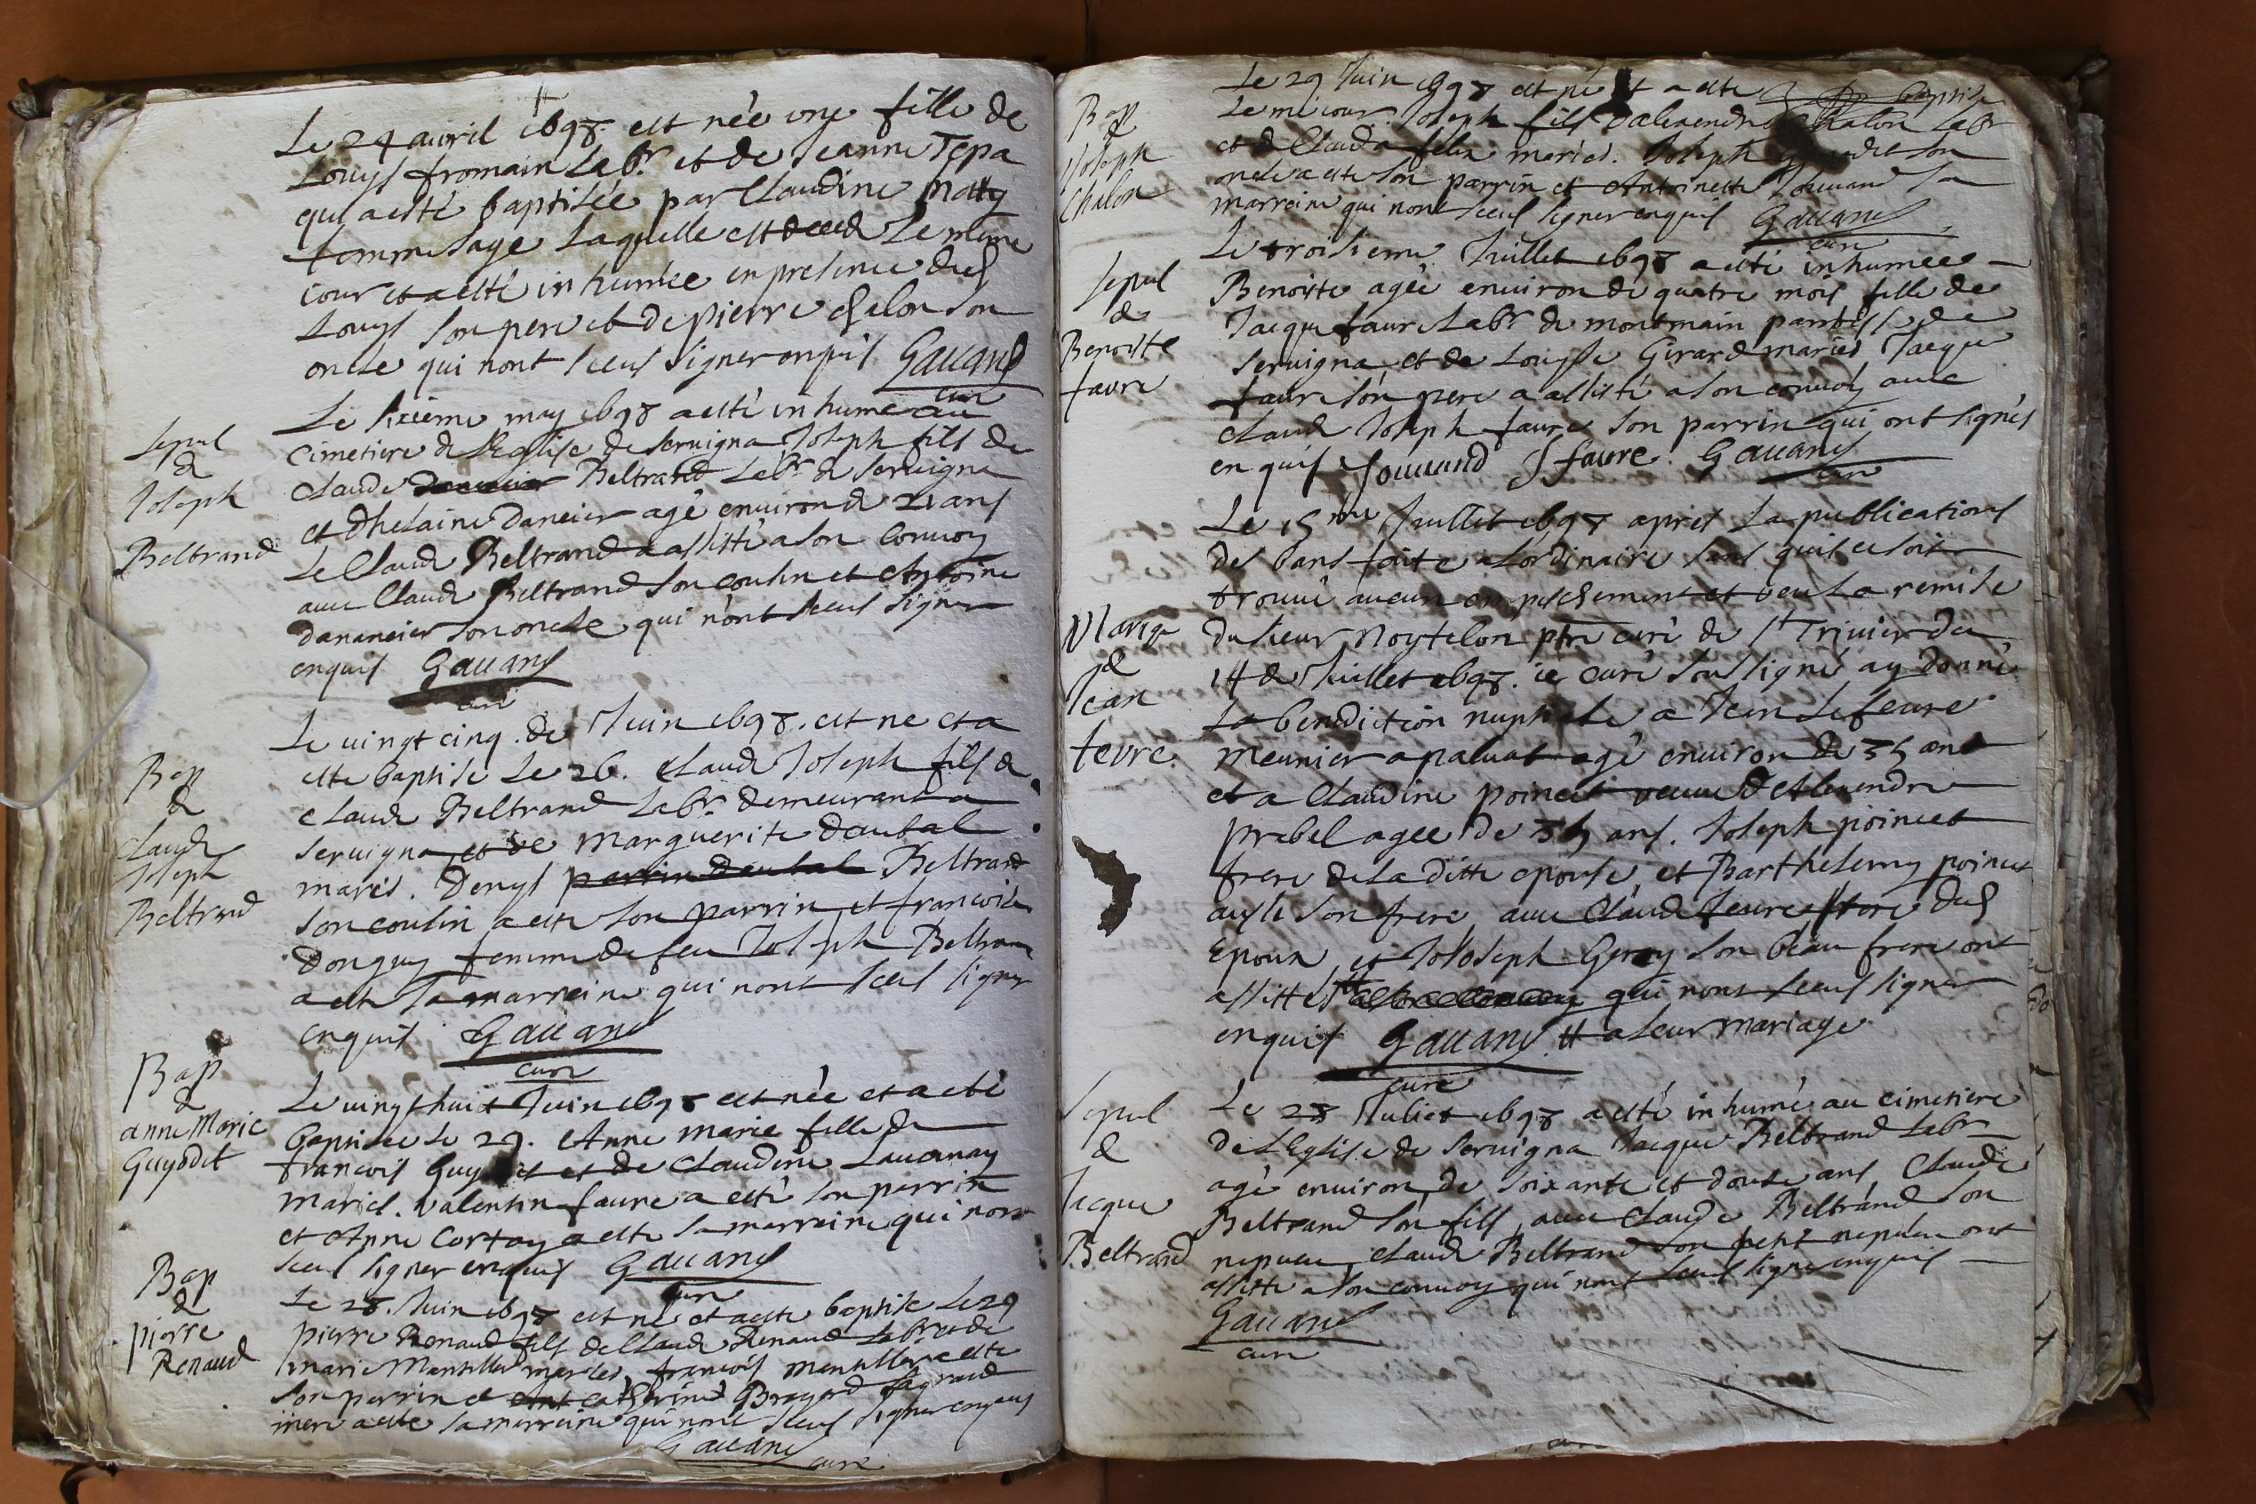 Le 24 avril 1698. est née une fille de
Louys fromain Labr. et de Jeanne Tepa
qui a esté baptisée par Claudine Matty
femme sage laquelle est deced le mesme
jour et a esté inhumée en presence dud
Louys son pere et de pierre chalon son
oncle qui nont sceus signer enquis Gauand
curé
Sepul
de
Joseph
Beltrand
Le sixieme may 1698 a esté inhumé au
cimetiere de l'Eglise de Seruigna Joseph fils de
Claude Beltrand Labr de Seruigna
et dhelaine Daneier agé environ de 21 ans
Le Claude Beltrand a assisté a son Conuoy
auec Claude Beltrand son cousin et Antoine
Dananeier son oncle qui n'ont sceus signer
enquis Gauand
curé
Bap
de
Claude
Joseph
Beltrand
Le uingt cinq de Juin 1698. est ne et a
este baptisé Le 26. Claude Joseph fils de
Claude Beltrand Labr demeurant a
Seruigna et de Marguerite Daubal
mariés. Denys parrin Daubal Beltrand
son cousin a esté son parrin et francoise
Donguy femme de feu Joseph Beltrand
a esté sa marreine qui nont sceus signer
enquis Gauand
curé
Bap
de
anne Marie
Guyodit
Le uingt huit Juin 1698 est née et a esté
baptisée Le 29. Anne Marie fille de
francois Guy et de Claudine Lauannay
mariés. Valentin faure a esté son parrin
et Anne Cortay a esté sa marreine qui nont
sceus signer enquis Gauand
curé
Bap
de
pierre
Renaud
Le 28. Juin 1698 est né et a esté baptisé Le 29
pierre Renaud fils de Claude Renaud Labr et de
marie Mantillier mariés francois Mantillier a esté
son parrin et Ant Catherine Brayard sa grand
mere a esté sa marreine qui nont sceus signer enquis
Gauand
curé
Bap
de
Joseph
Chalon
Le 29 Juin 1698 est né et a esté baptisé
Le me jour. Joseph fils dalexendre Chalon Labr
et de Clauda felix mariés. Joseph son
oncle a esté son parrin et Antoinette Jouuand sa
marreine qui nont sceus signer enquis Gauand
curé
Sepul
de
Benoiste
faure
Le troisieme Juillet 1698 a esté inhumée
Benoiste agée environ de quatre mois fille de
Jacque faure Labr de montmain parroisse de
Seruigna et de Louyse Girard mariés Jacque
faure son pere a assisté a son conuoy auec
Claude Joseph faure son parrin qui ont signés
enquis Jouuand J faure Gauand
curé
Mariage
de
Jean
fevre
Le 15me Juillet 1698 apres La publications
des bans faite a Lordinaire sans quil ce soit
trouué aucun empeschement et veu La remise
du Sieur Noytelon ptre curé de St Triuier du
14 de Juillet 1698. ie curé soussigné ay donné
La benediction nuptiale a Jean Lefeure
meunier a paluat agé environ de 35 ans
et a Claudine poincet veuue d'Alexendre
prabel agée de 35 ans. Joseph poincet
frere de La ditte epouse et Barthelemy poincet
aussi son frere auec Claude feure frere dud
Epoux et Joseph Geroy son beau frere ont
assistés # qui nont sceus signer
enquis Gauand # a leur mariage
curé
Sepul
de
Jacque
Beltrand
Le 28 Juliet 1698 a esté inhumé au cimetiere
de L'Eglise de Seruigna Jacque Beltrand Labr
agé environ de soixante et douse ans Claude
Beltrand son fils auec Claude Beltrand son
nepueu Claude Beltrand son petit nepueu ont
assisté a son conuoy qui nont sceus signer enquis
Gauand
curé